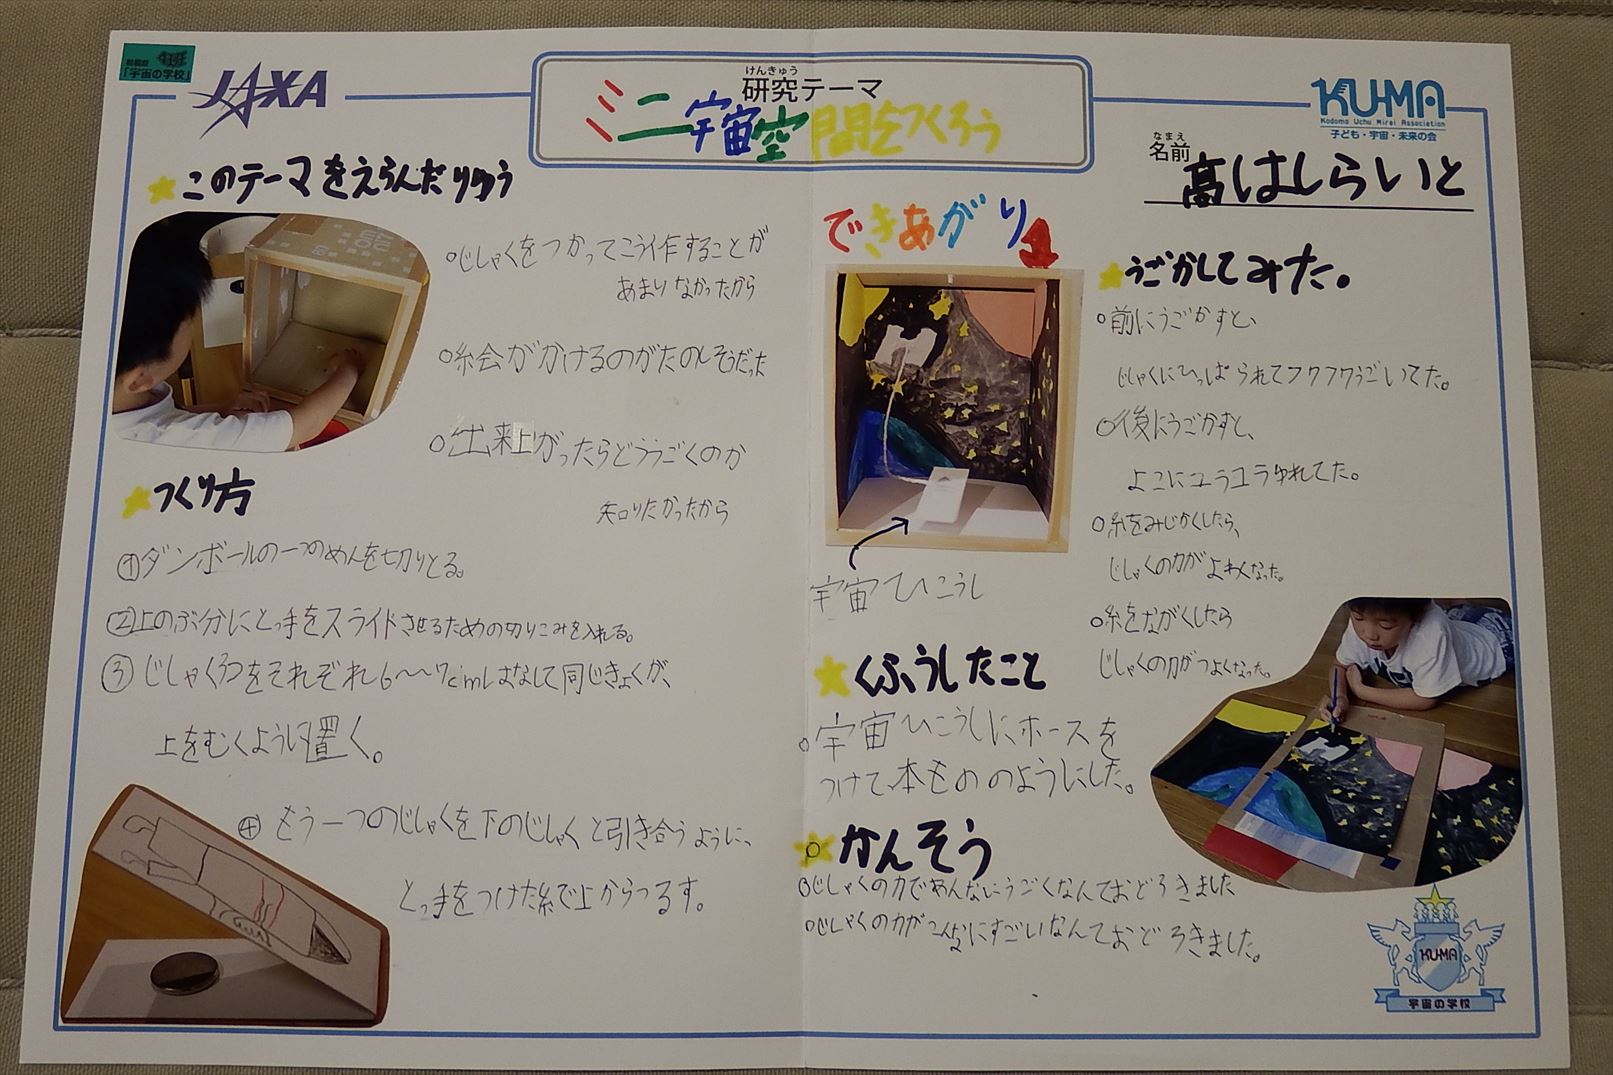 「宇宙の学校」
JAXA
けんきゅう
研究テーマ
ミニ宇宙空間をつくろう
KU-MA
Kodomo Uchu Mirai Association
子ども・宇宙・未来の会
なまえ
名前
高はしらいと
このテーマをえらんだりゆう
○じしゃくをつかってこう作することが
あまりなかったから
○絵がかけるのがたのしそうだった
○出来上がったらどううごくのか
知りたかったから
つくり方
①ダンボールの一つのめんを切りとる。
②上のぶ分にとっ手をスライドさせるための切りこみを入れる。
③じしゃく3つをそれぞれ6〜7cmはなして同じきょくが、
上をむくように置く。
④もう一つのじしゃくを下のじしゃくと引き合うように、
とっ手をつけた糸で上からつるす。
できあがり
宇宙ひこうし
くふうしたこと
○宇宙ひこうしにホースを
つけて本もののようにした。
かんそう
○じしゃくの力であんなにうごくなんておどろきました
○じしゃくの力がこんなにすごいなんておどろきました。
うごかしてみた。
○前にうごかすと、
じしゃくにひっぱられてフワフワうごいてた。
○後にうごかすと、
よこにユラユラゆれてた。
○糸をみじかくしたら、
じしゃくの力がよわくなった。
○糸をながくしたら
じしゃくの力がつよくなった。
KU-MA
宇宙の学校